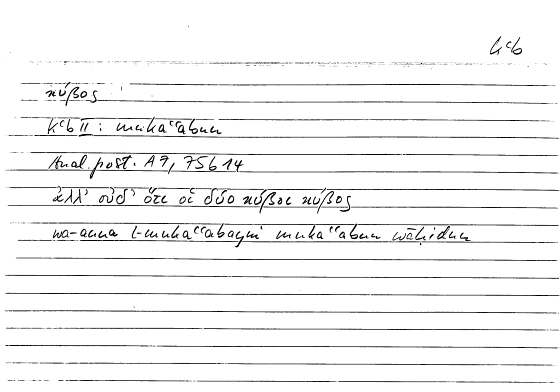 kʿb
κύβος
kʿb II : mukaʿʿabun
Anal. post. A 7, 75 b 14
ἀλλ' οὐδ' ὅτι οἱ δύο κύβοι κύβος
wa-anna l-mukaʿʿabayni mukaʿʿabun wāḥidun